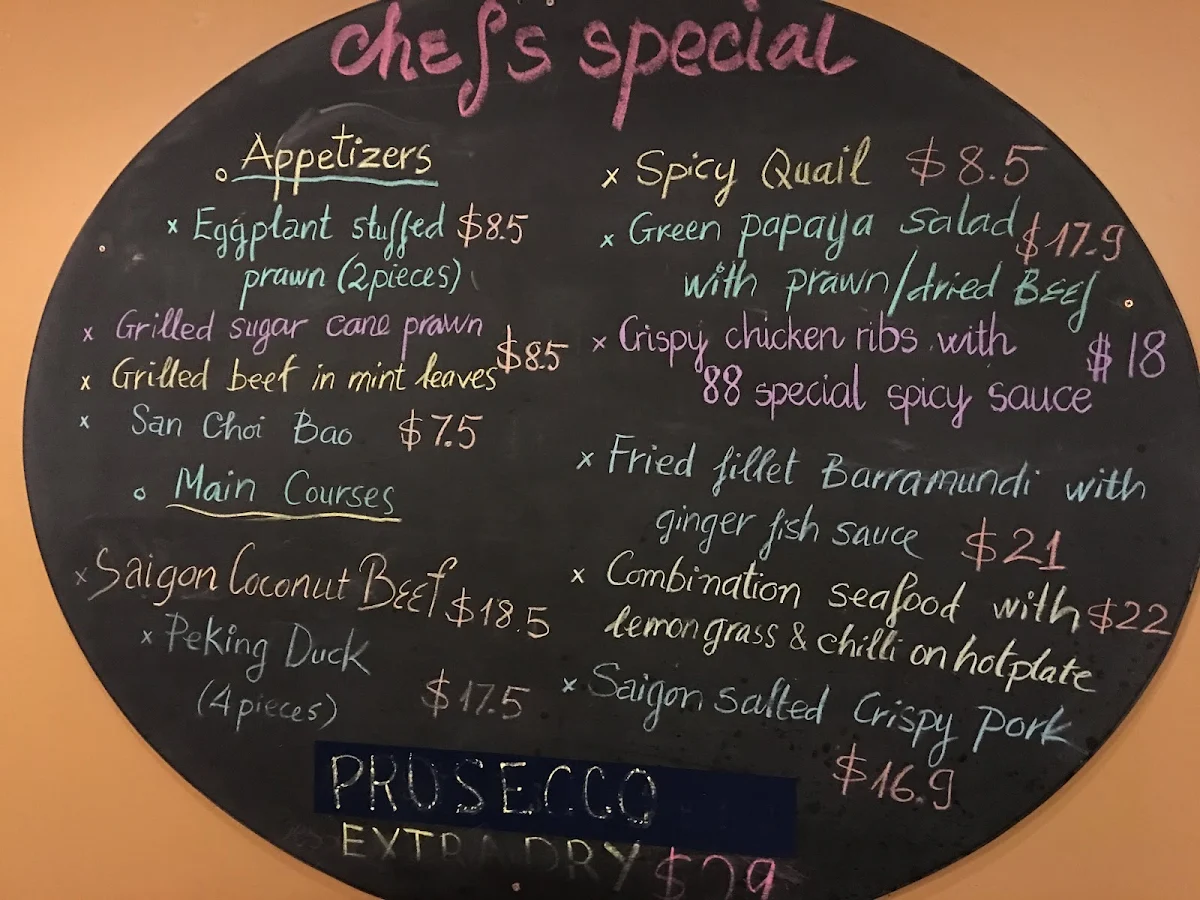 chefs special
Appetizers
x Eggplant stuffed $8.5
prawn (2pieces)
x Grilled sugar cane prawn
$8.5
x Grilled beef in mint leaves
x San Choi Bao $7.5
Main Courses
x Saigon Coconut BEEf $18.5
x Peking Duck
(4pieces) $17.5
x Spicy Quail $8.5
x Green papaya salad $17.9
with prawn/dried BEEf
x Crispy chicken ribs with $18
88 special spicy sauce
x Fried fillet Barramundi with
ginger fish sauce $21
x Combination seafood with $22
lemongrass & chilli on hotplate
x Saigon salted Crispy Pork
$16.9
PROSECCO
EXTRA DRY $29